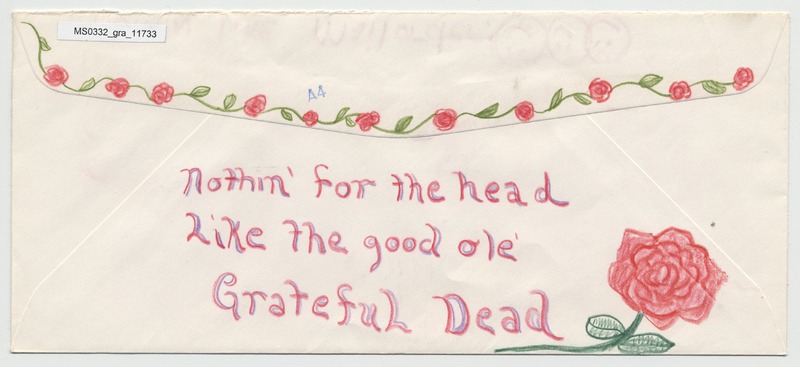 MS0332_gra_11733
A4
Nothin' for the head
Like the good ole'
Grateful Dead